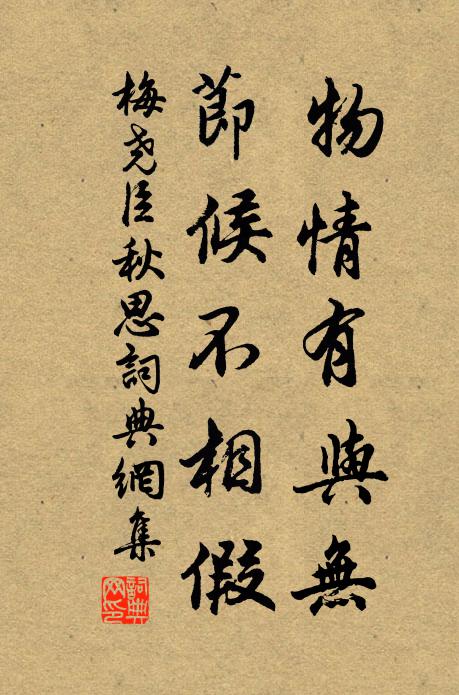 物情有與無
節候不相假
梅堯臣秋思詞典網集
詞典网印